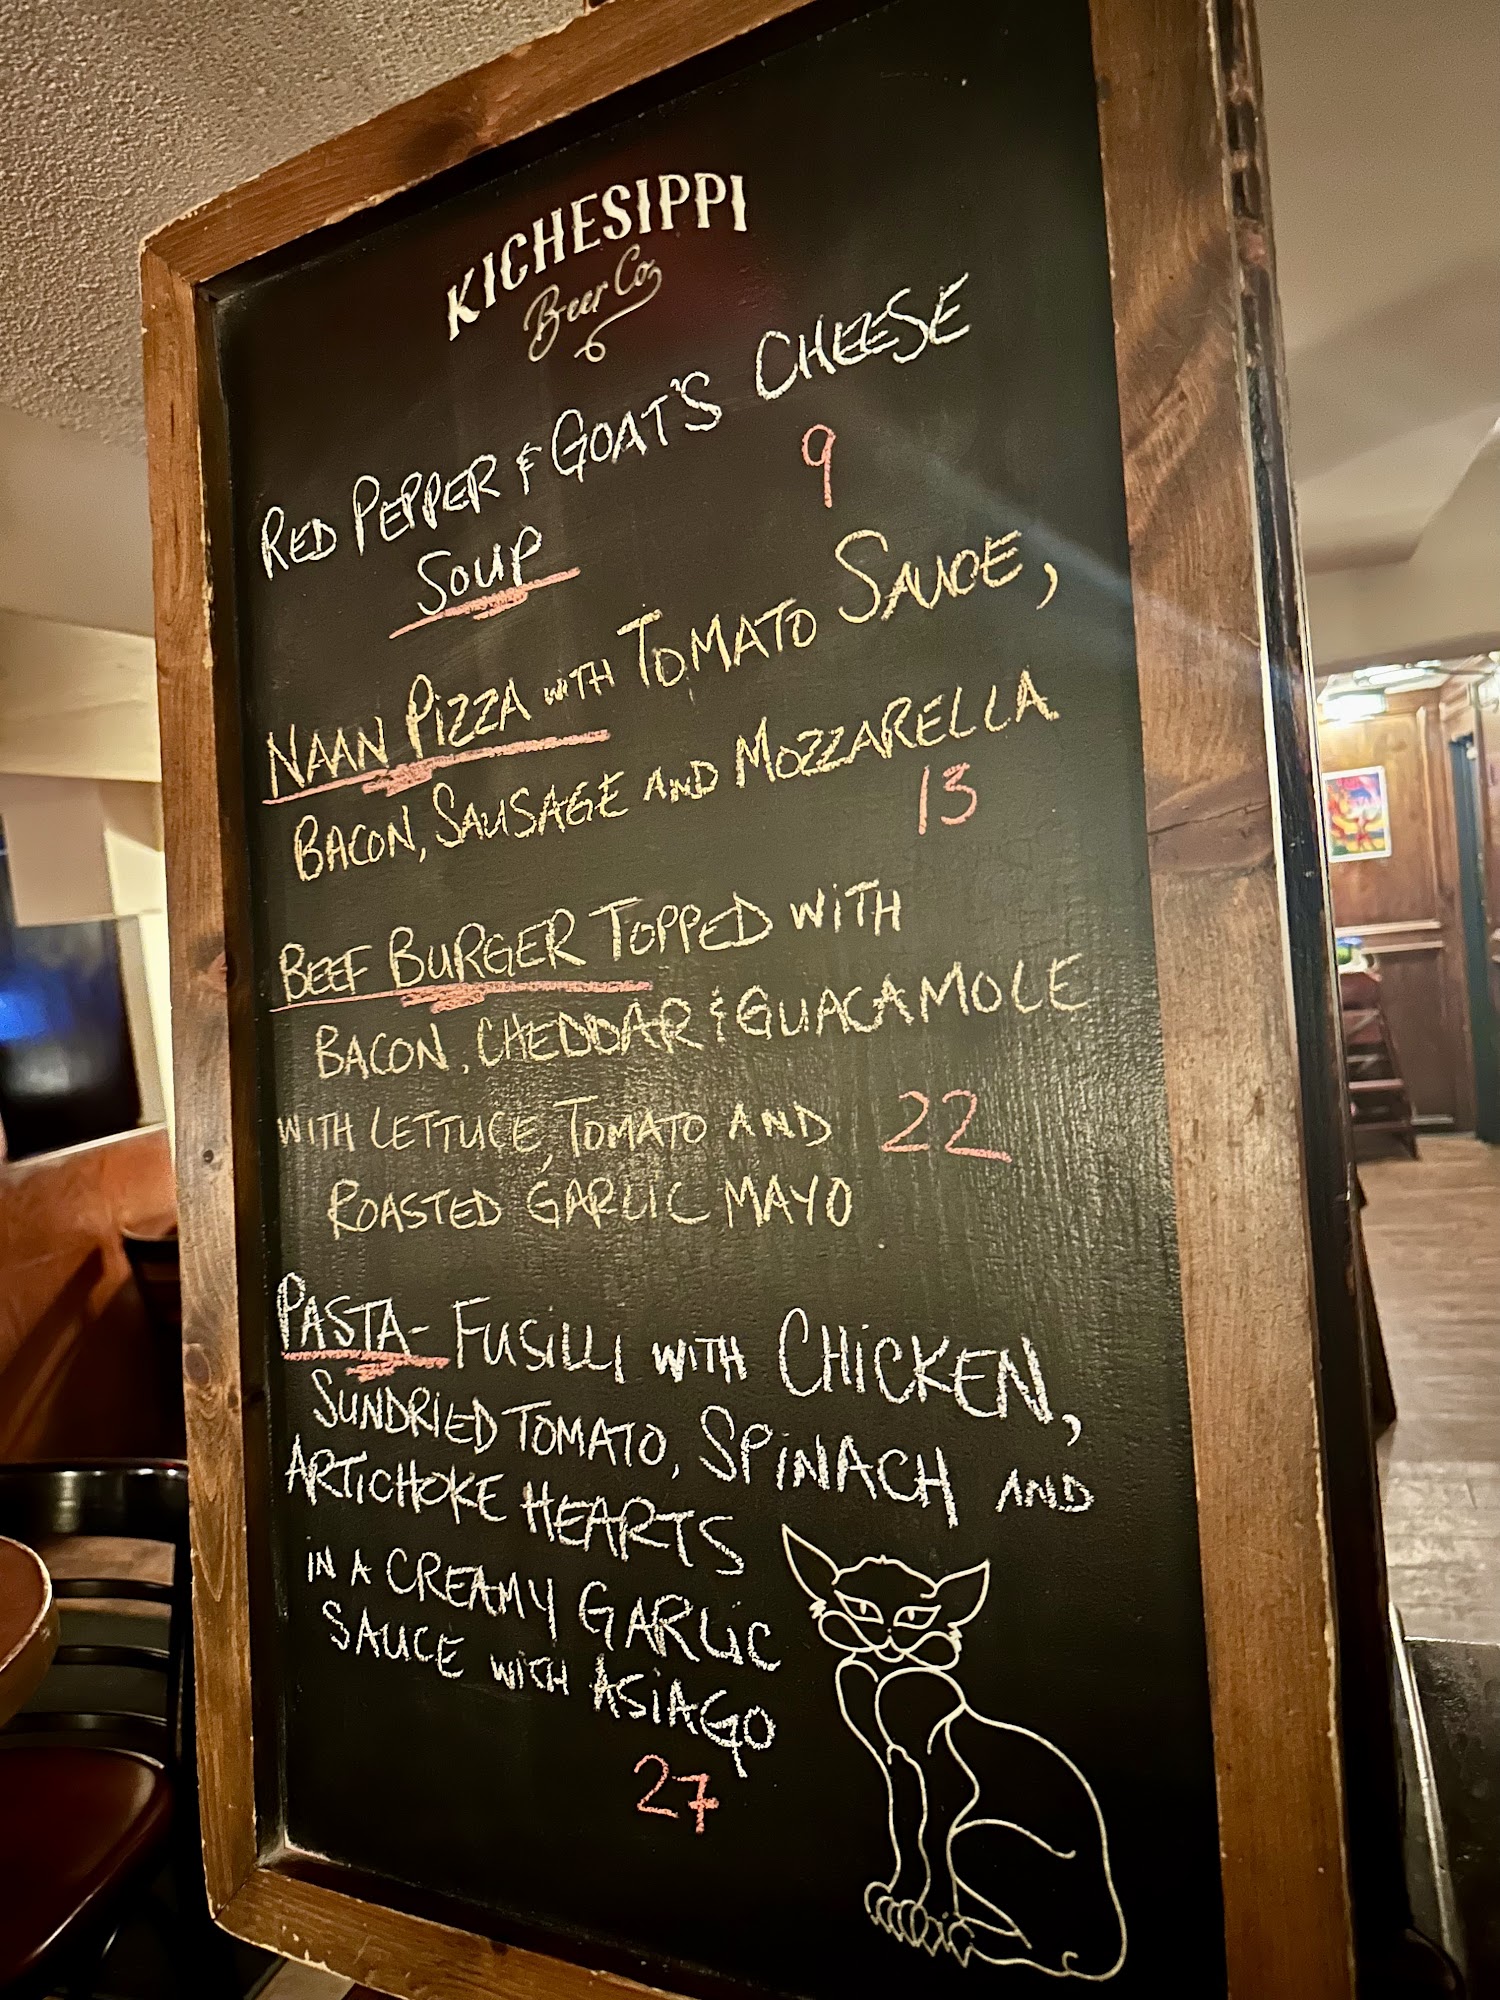 KICHESIPPI
Beer Co
RED PEPPER & GOAT'S CHEESE
SOUP 9
NAAN PIZZA WITH TOMATO SAUCE,
BACON, SAUSAGE AND MOZZARELLA
13
BEEF BURGER TOPPED WITH
BACON, CHEDDAR & GUACAMOLE
WITH LETTUCE, TOMATO AND 22
ROASTED GARLIC MAYO
PASTA- FUSILLI WITH CHICKEN,
SUNDRIED TOMATO, SPINACH AND
ARTICHOKE HEARTS
IN A CREAMY GARLIC
SAUCE WITH ASIAGO
27